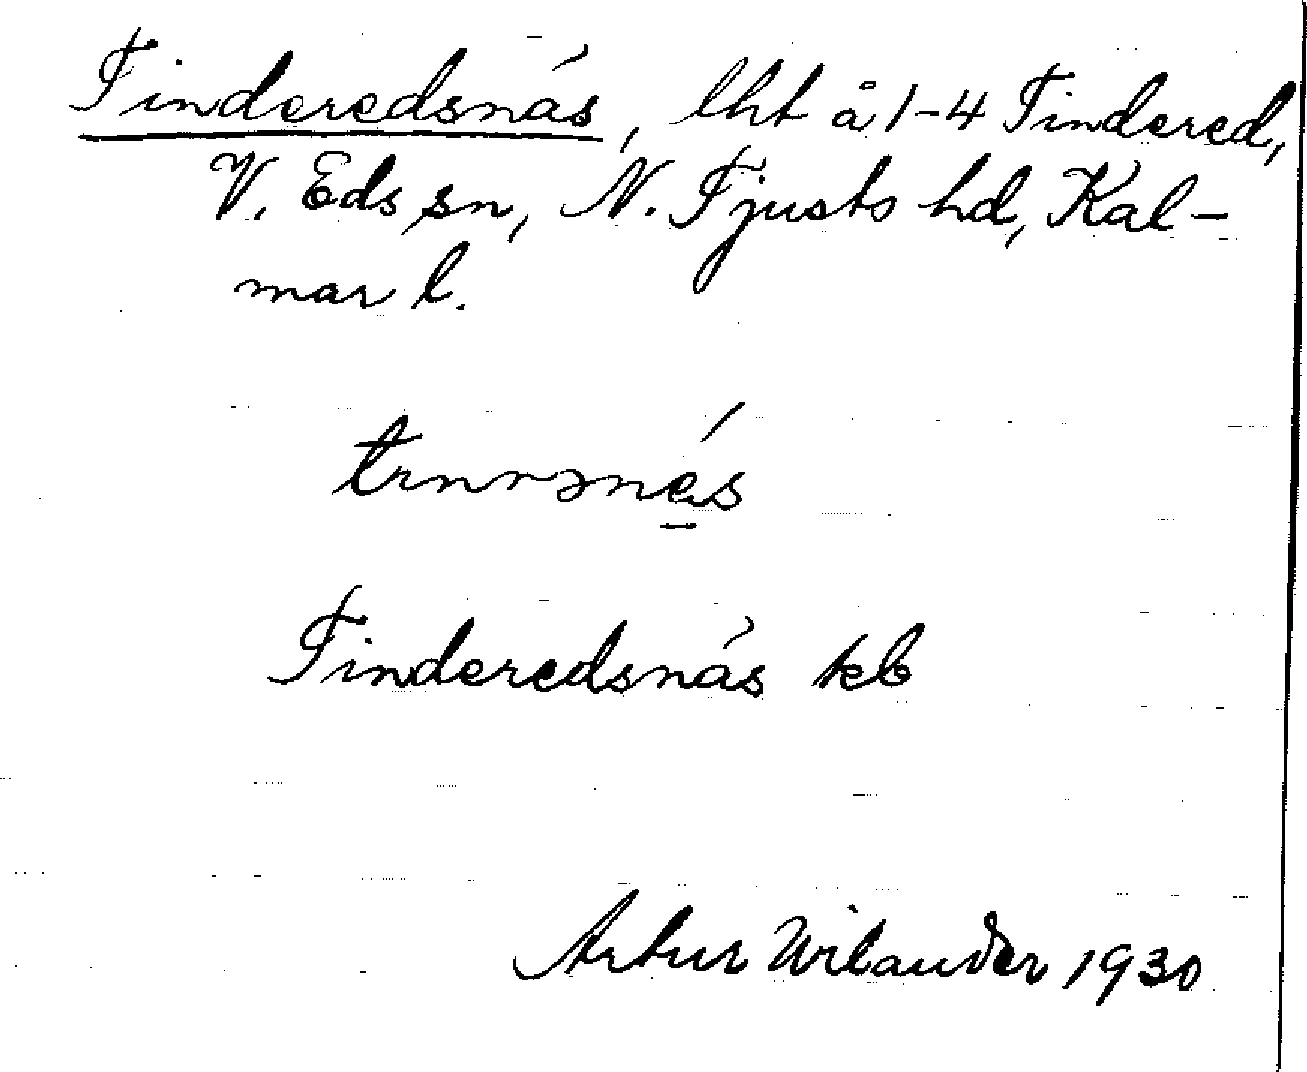 Tinderedsnäs, lht å 1-4 Tindered,
V. Eds sn, N. Tjusts hd, Kal-
mar l.
tınnrənǽs
Tinderedsnäs kb
Artur Wilander 1930